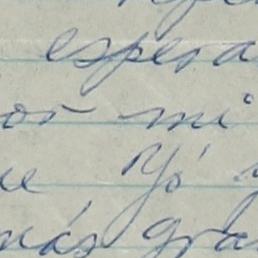 espera
or mi
ue Yó
más gra